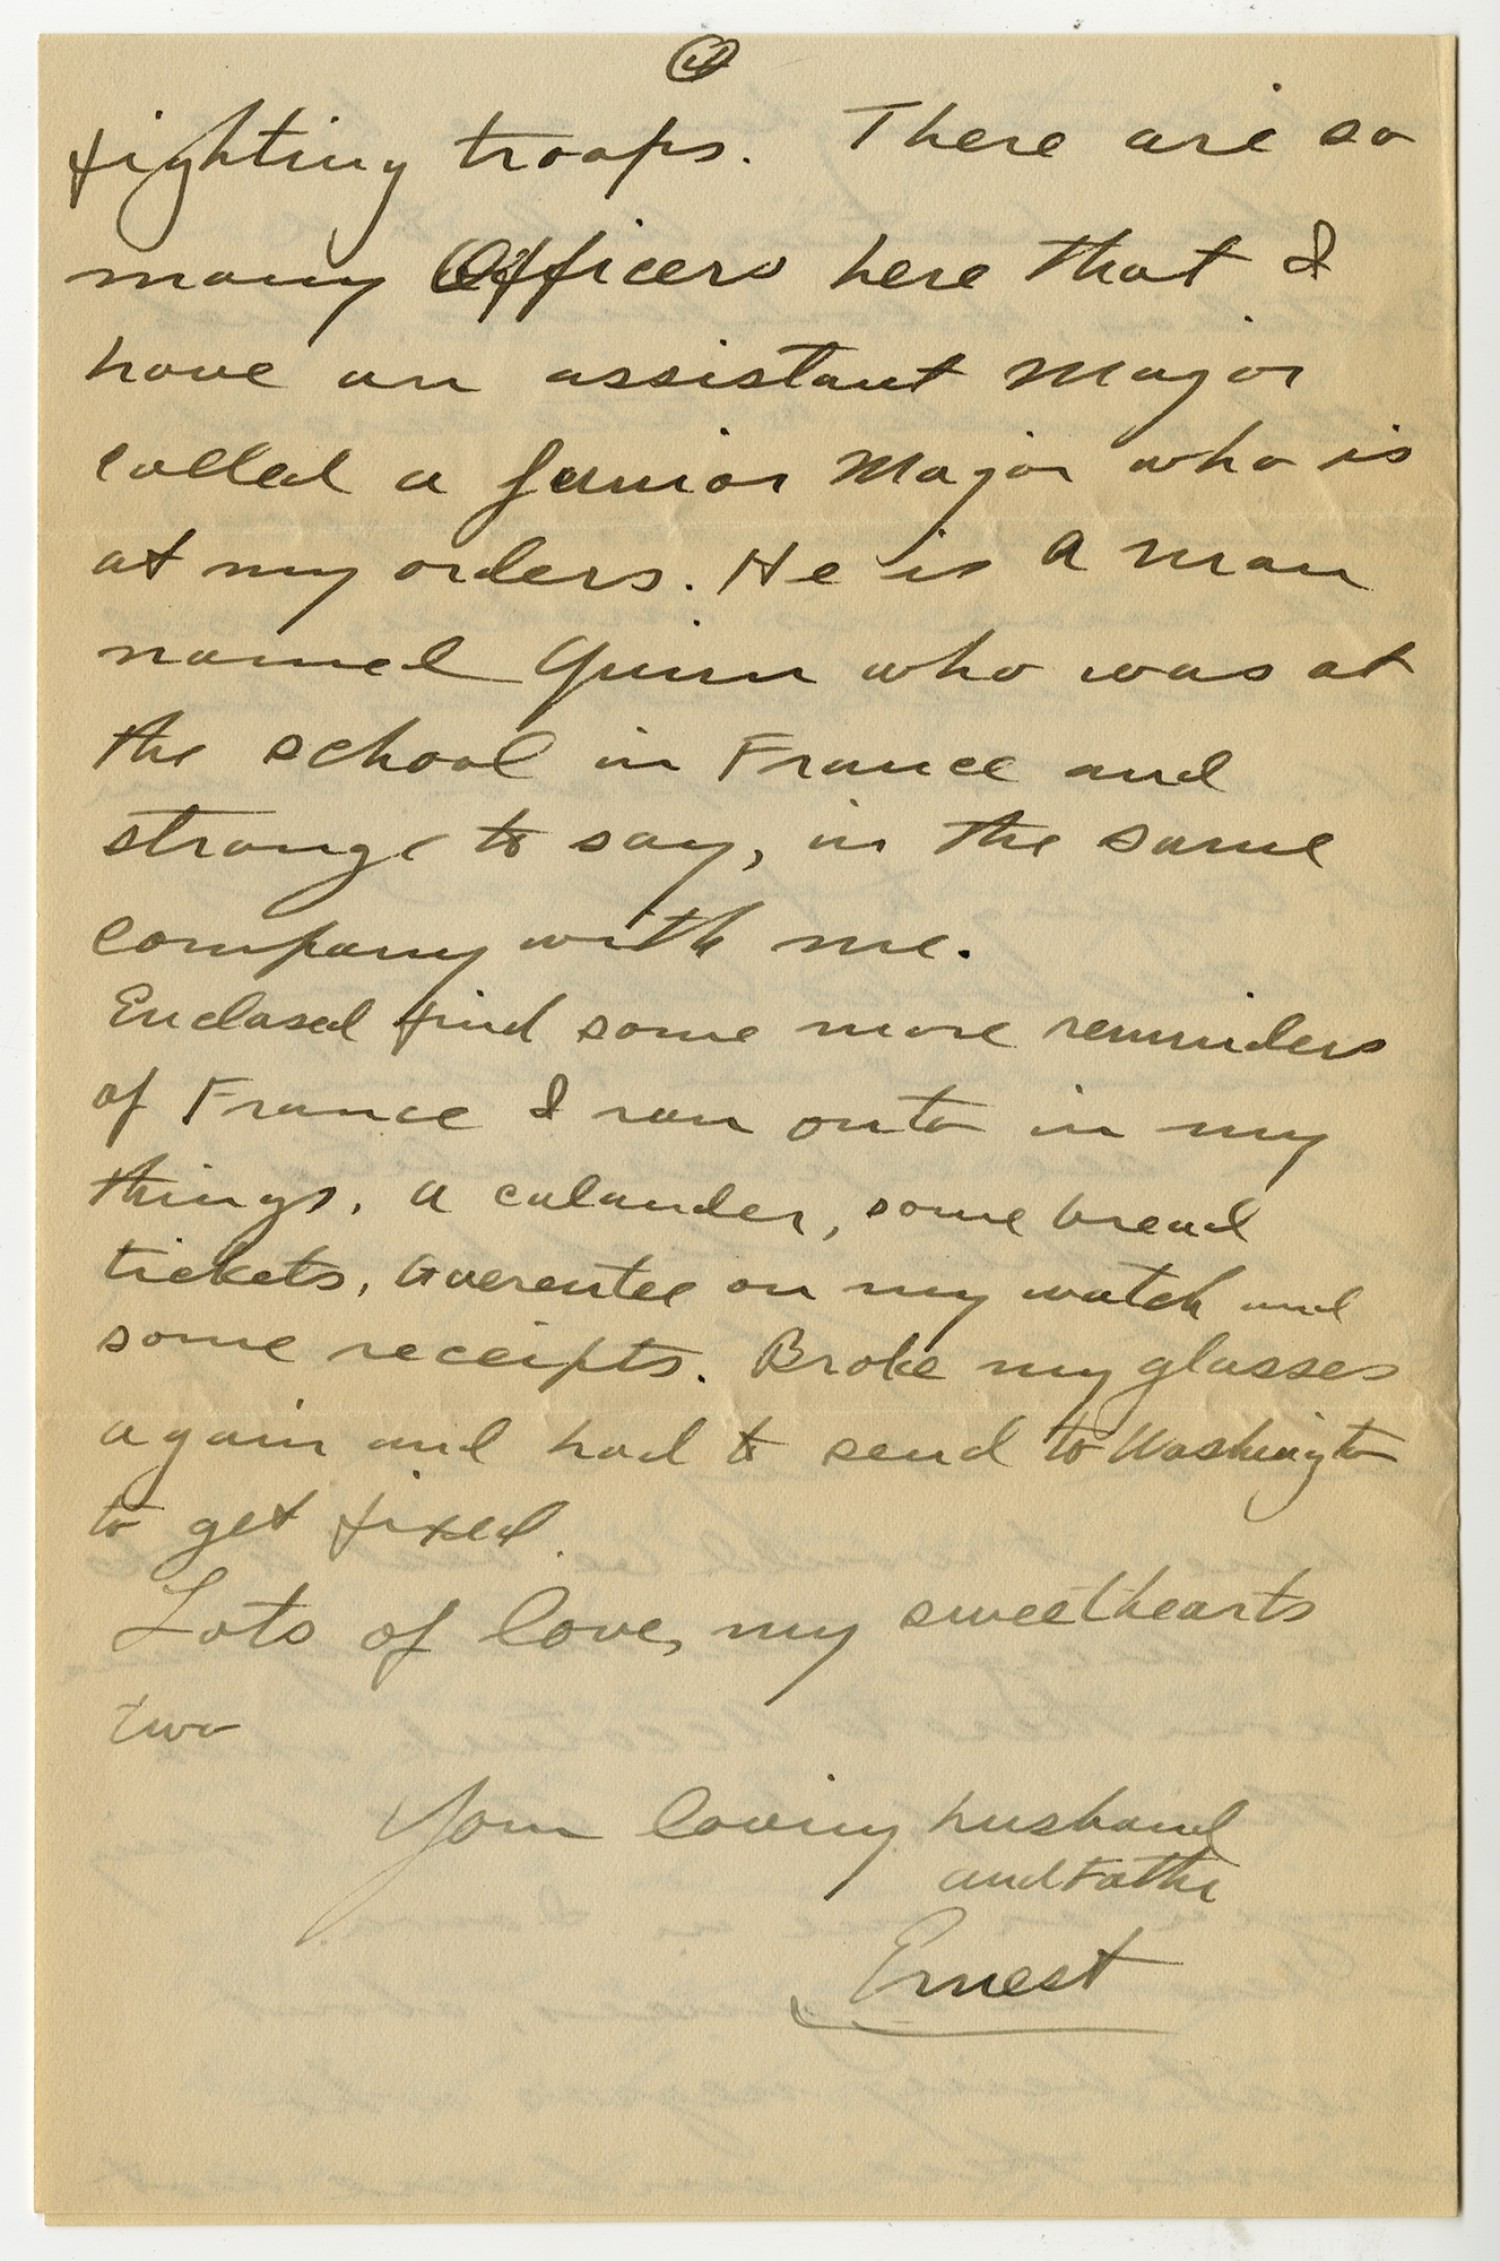 4
fighting troops. There are so
many Officers here that I
have an assistant Major
called a Junior Major who is
at my orders. He is a man
named Quinn who was at
the school in France and
strange to say, in the same
company with me.
Enclosed find some more reminders
of France I ran onto in my
things. a calander, some bread
tickets, Guerentee on my watch and
some receipts. Broke my glasses
again and had to send to Washington
to get fixed.
Lots of love, my sweethearts
two
Your loving husband
and Father
Ernest